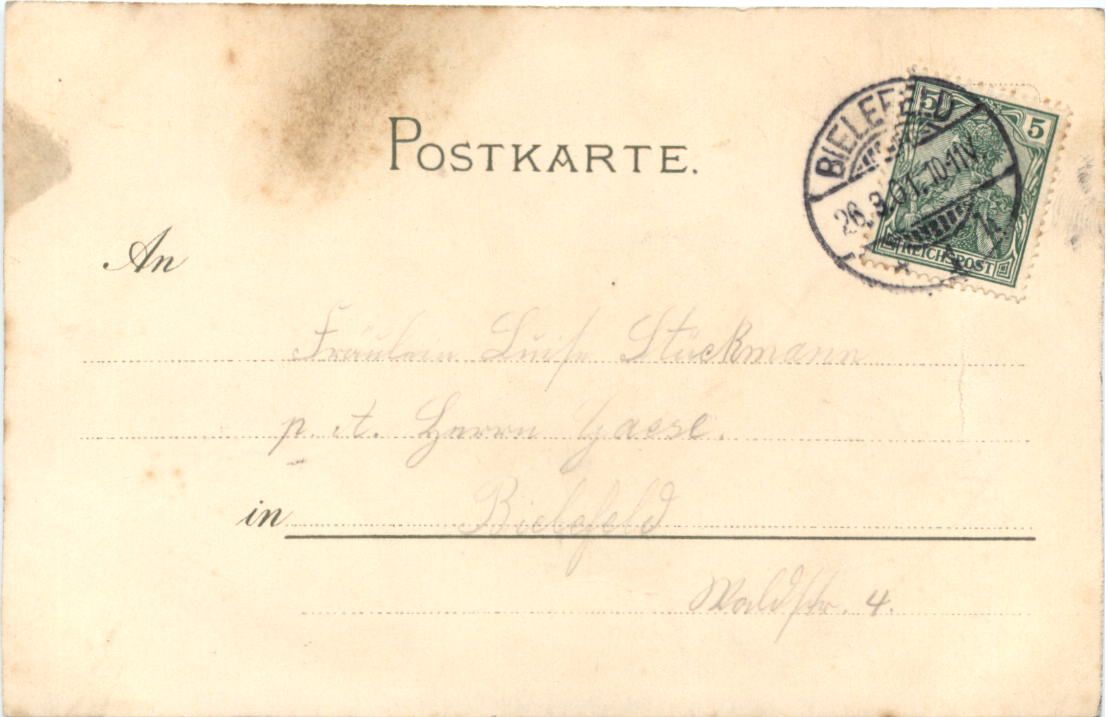 POSTKARTE.
BIELEFELD
26.9.01. 10-11V.
5 5
REICHSPOST
An
Fräulein Luise Stückmann
p. A. Herrn
in Bielefeld
Waldstr. 4.